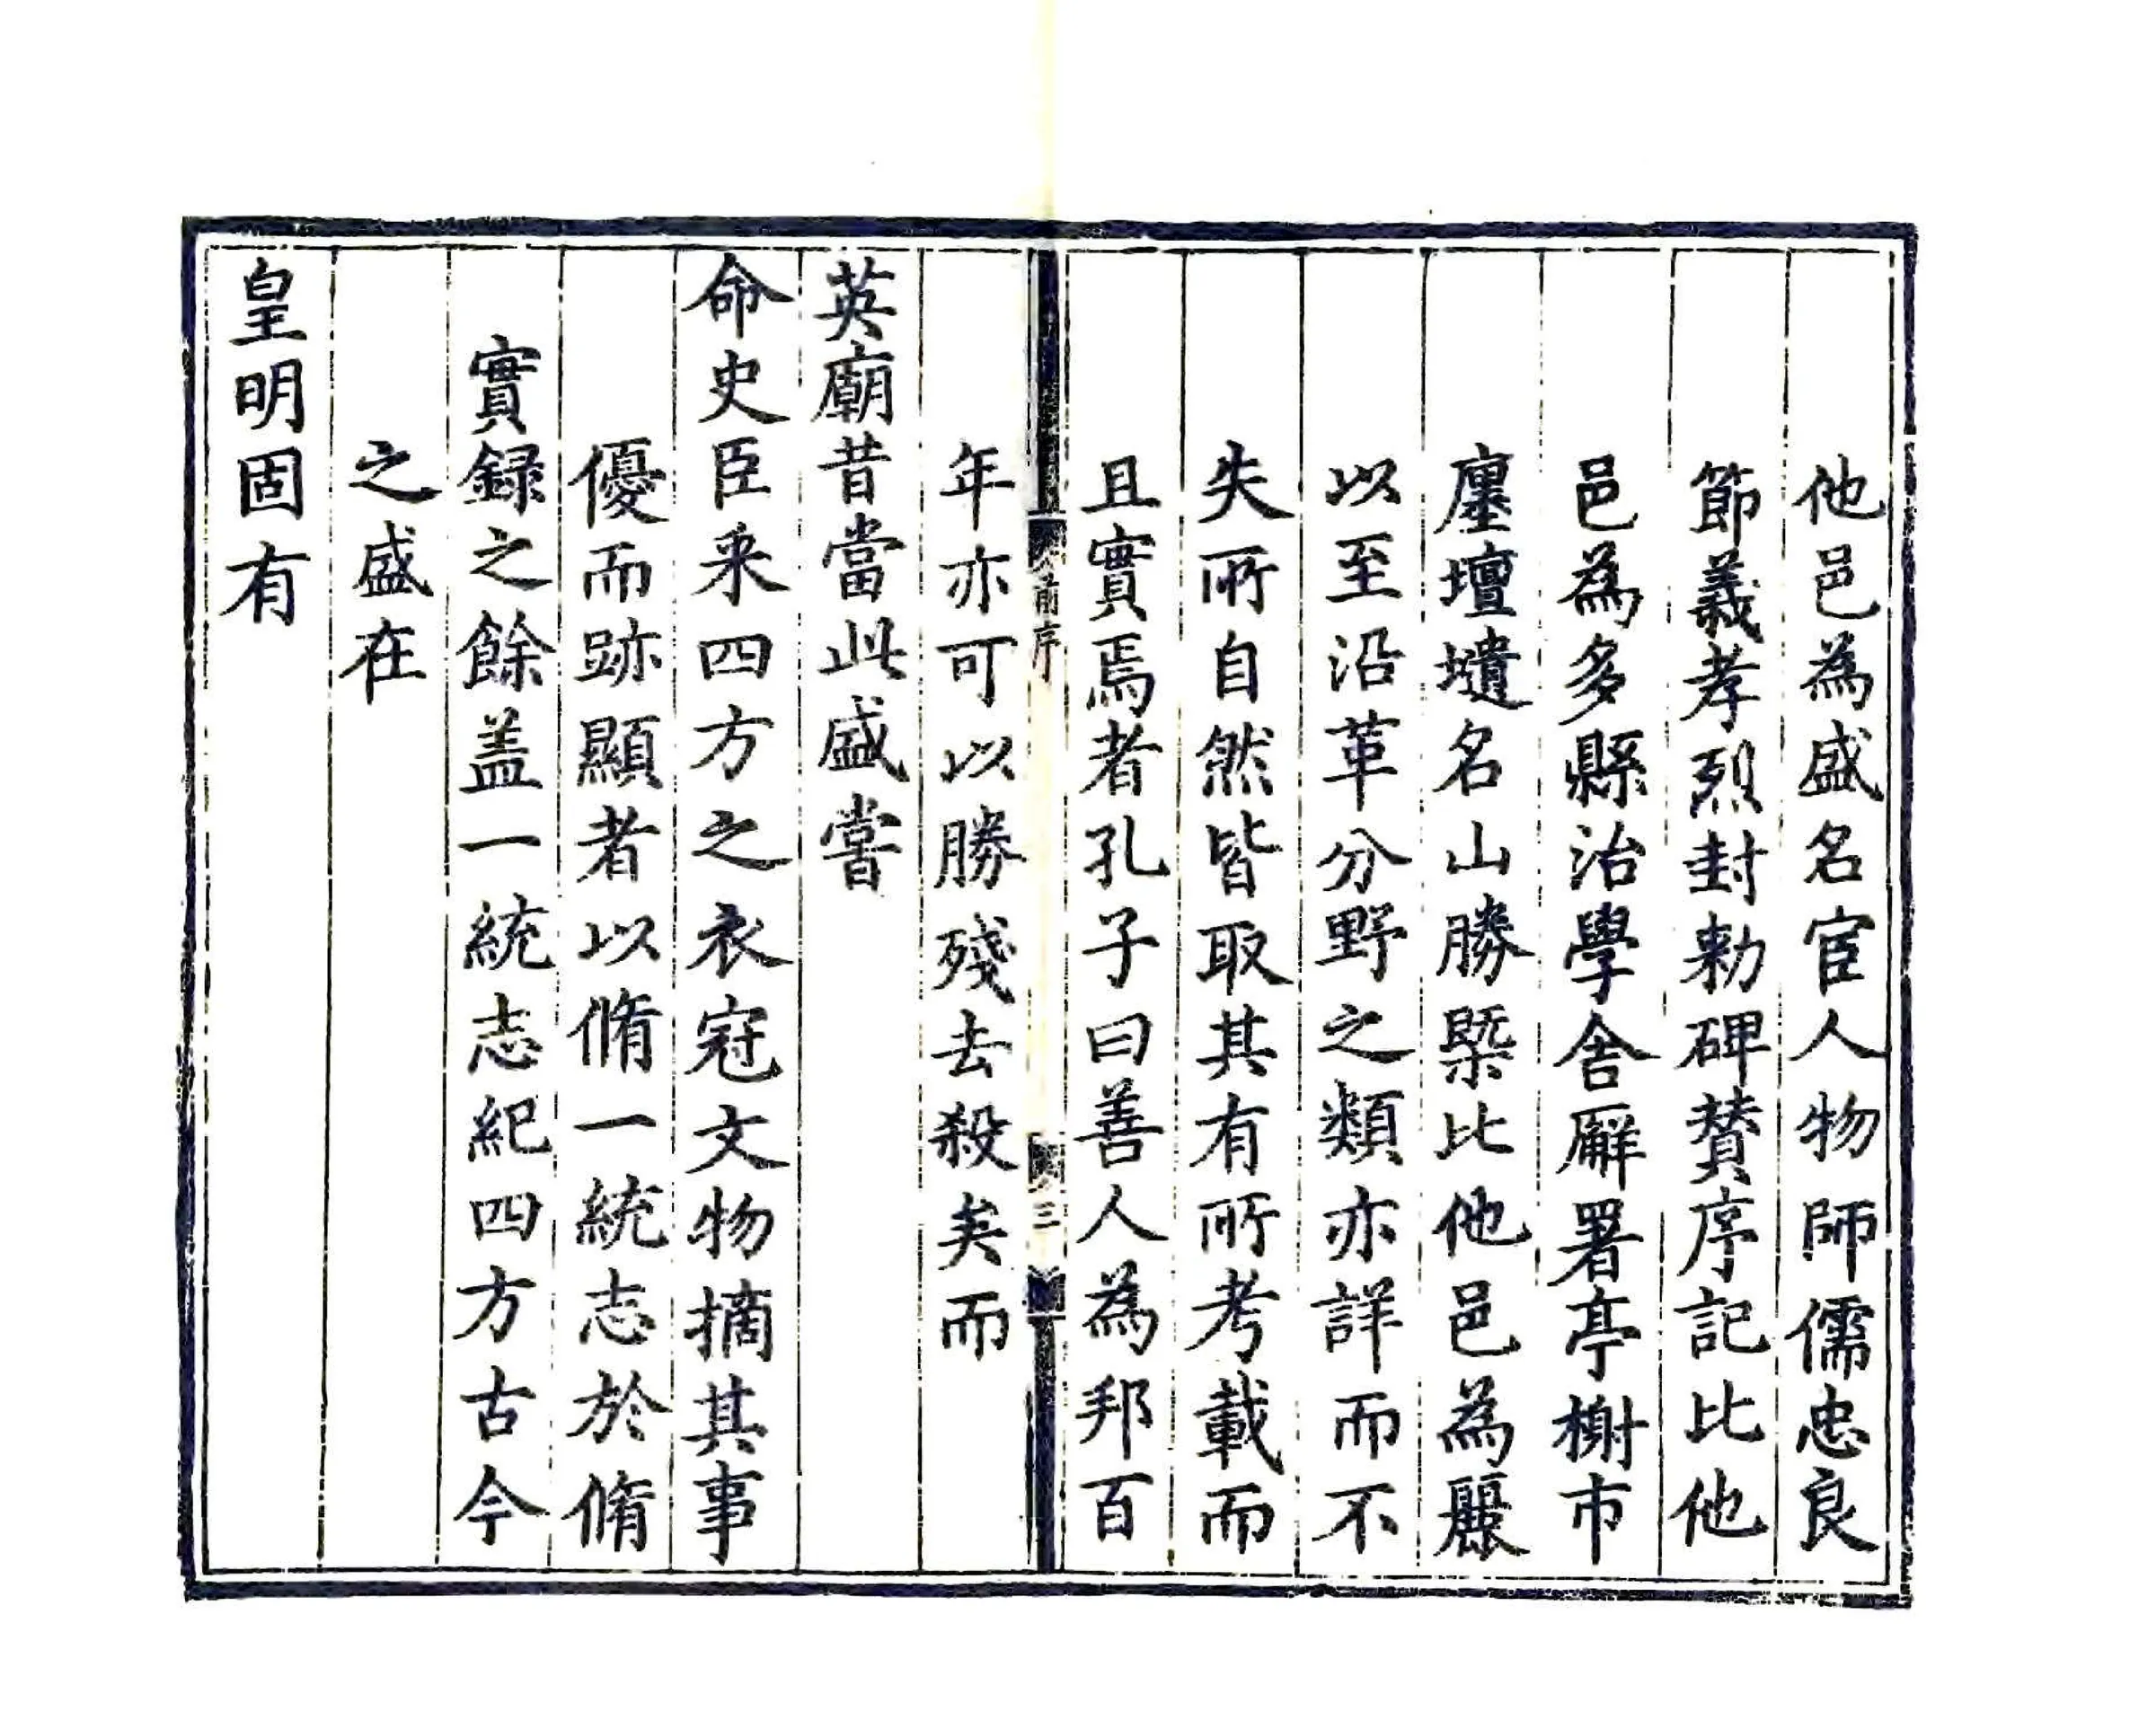 他邑為盛名宦人物師儒忠良
節義孝烈封勅碑贊序記比他
邑為多縣治學舍廨署亭榭市
廛壇壝名山勝槩比他邑為麗
以至沿革分野之類亦詳而不
失所自然皆取其有所考載而
且實焉者孔子曰善人為邦百
前序
三
年亦可以勝殘去殺矣而
英廟昔當此盛嘗
命史臣采四方之衣冠文物摘其事
優而跡顯者以脩一統志於脩
實録之餘盖一統志紀四方古今
之盛在
皇明固有